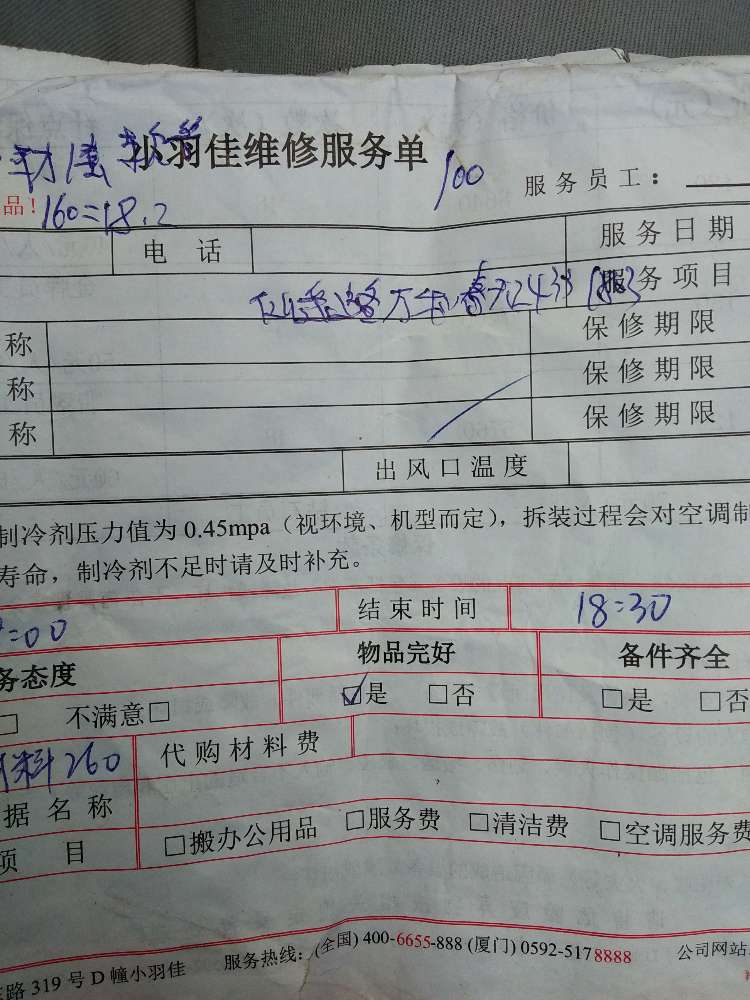 小羽佳维修服务单
100
服务员工：
品！ 160=18.2
电 话
服务日期
服务项目
称
保修期限
称
保修期限
称
保修期限
出风口温度
制冷剂压力值为 0.45mpa（视环境、机型而定），拆装过程会对空调制
寿命，制冷剂不足时请及时补充。
:00
结束时间
18:30
务态度
物品完好
备件齐全
□ 不满意□
☑是 □否
□是 □否
料260
代购材料费
据 名 称
项 目
□搬办公用品 □服务费 □清洁费 □空调服务费
路 319 号 D 幢小羽佳 服务热线：(全国) 400-6655-888 (厦门) 0592-5178888 公司网站